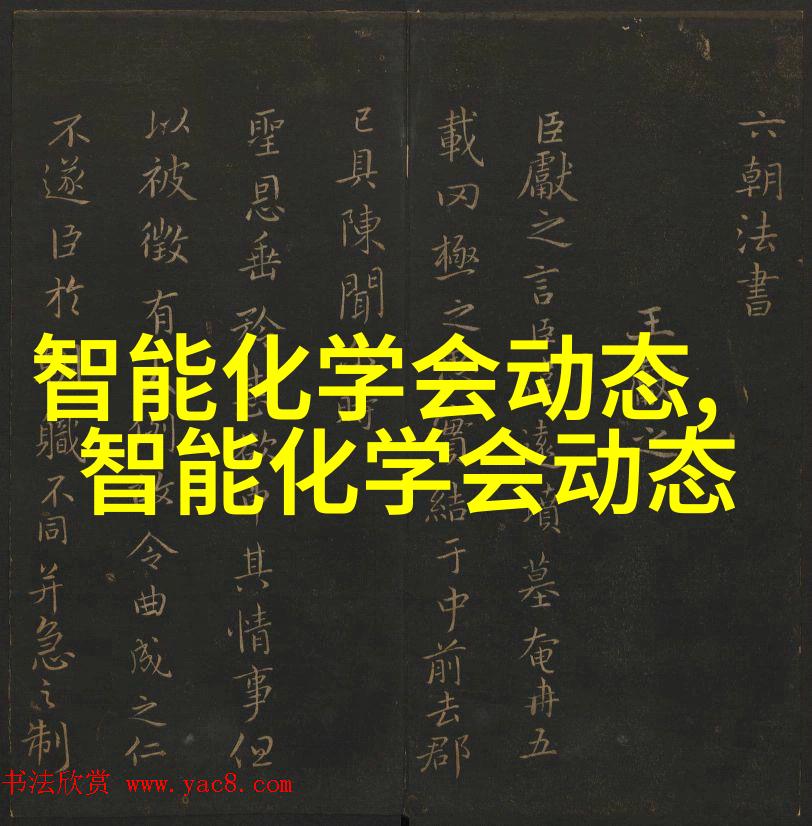 智能化学会动态,
智能化学会动态
六朝法書
王之
臣獻之言臣遠墳墓奄冉五
載罔極之實結于中前去郡
已具陳聞
聖恩垂矜甚欲其情事但
以被徵有令曲成之仁
不遂臣於職不同并急之制
书法欣赏 www.yac8.com